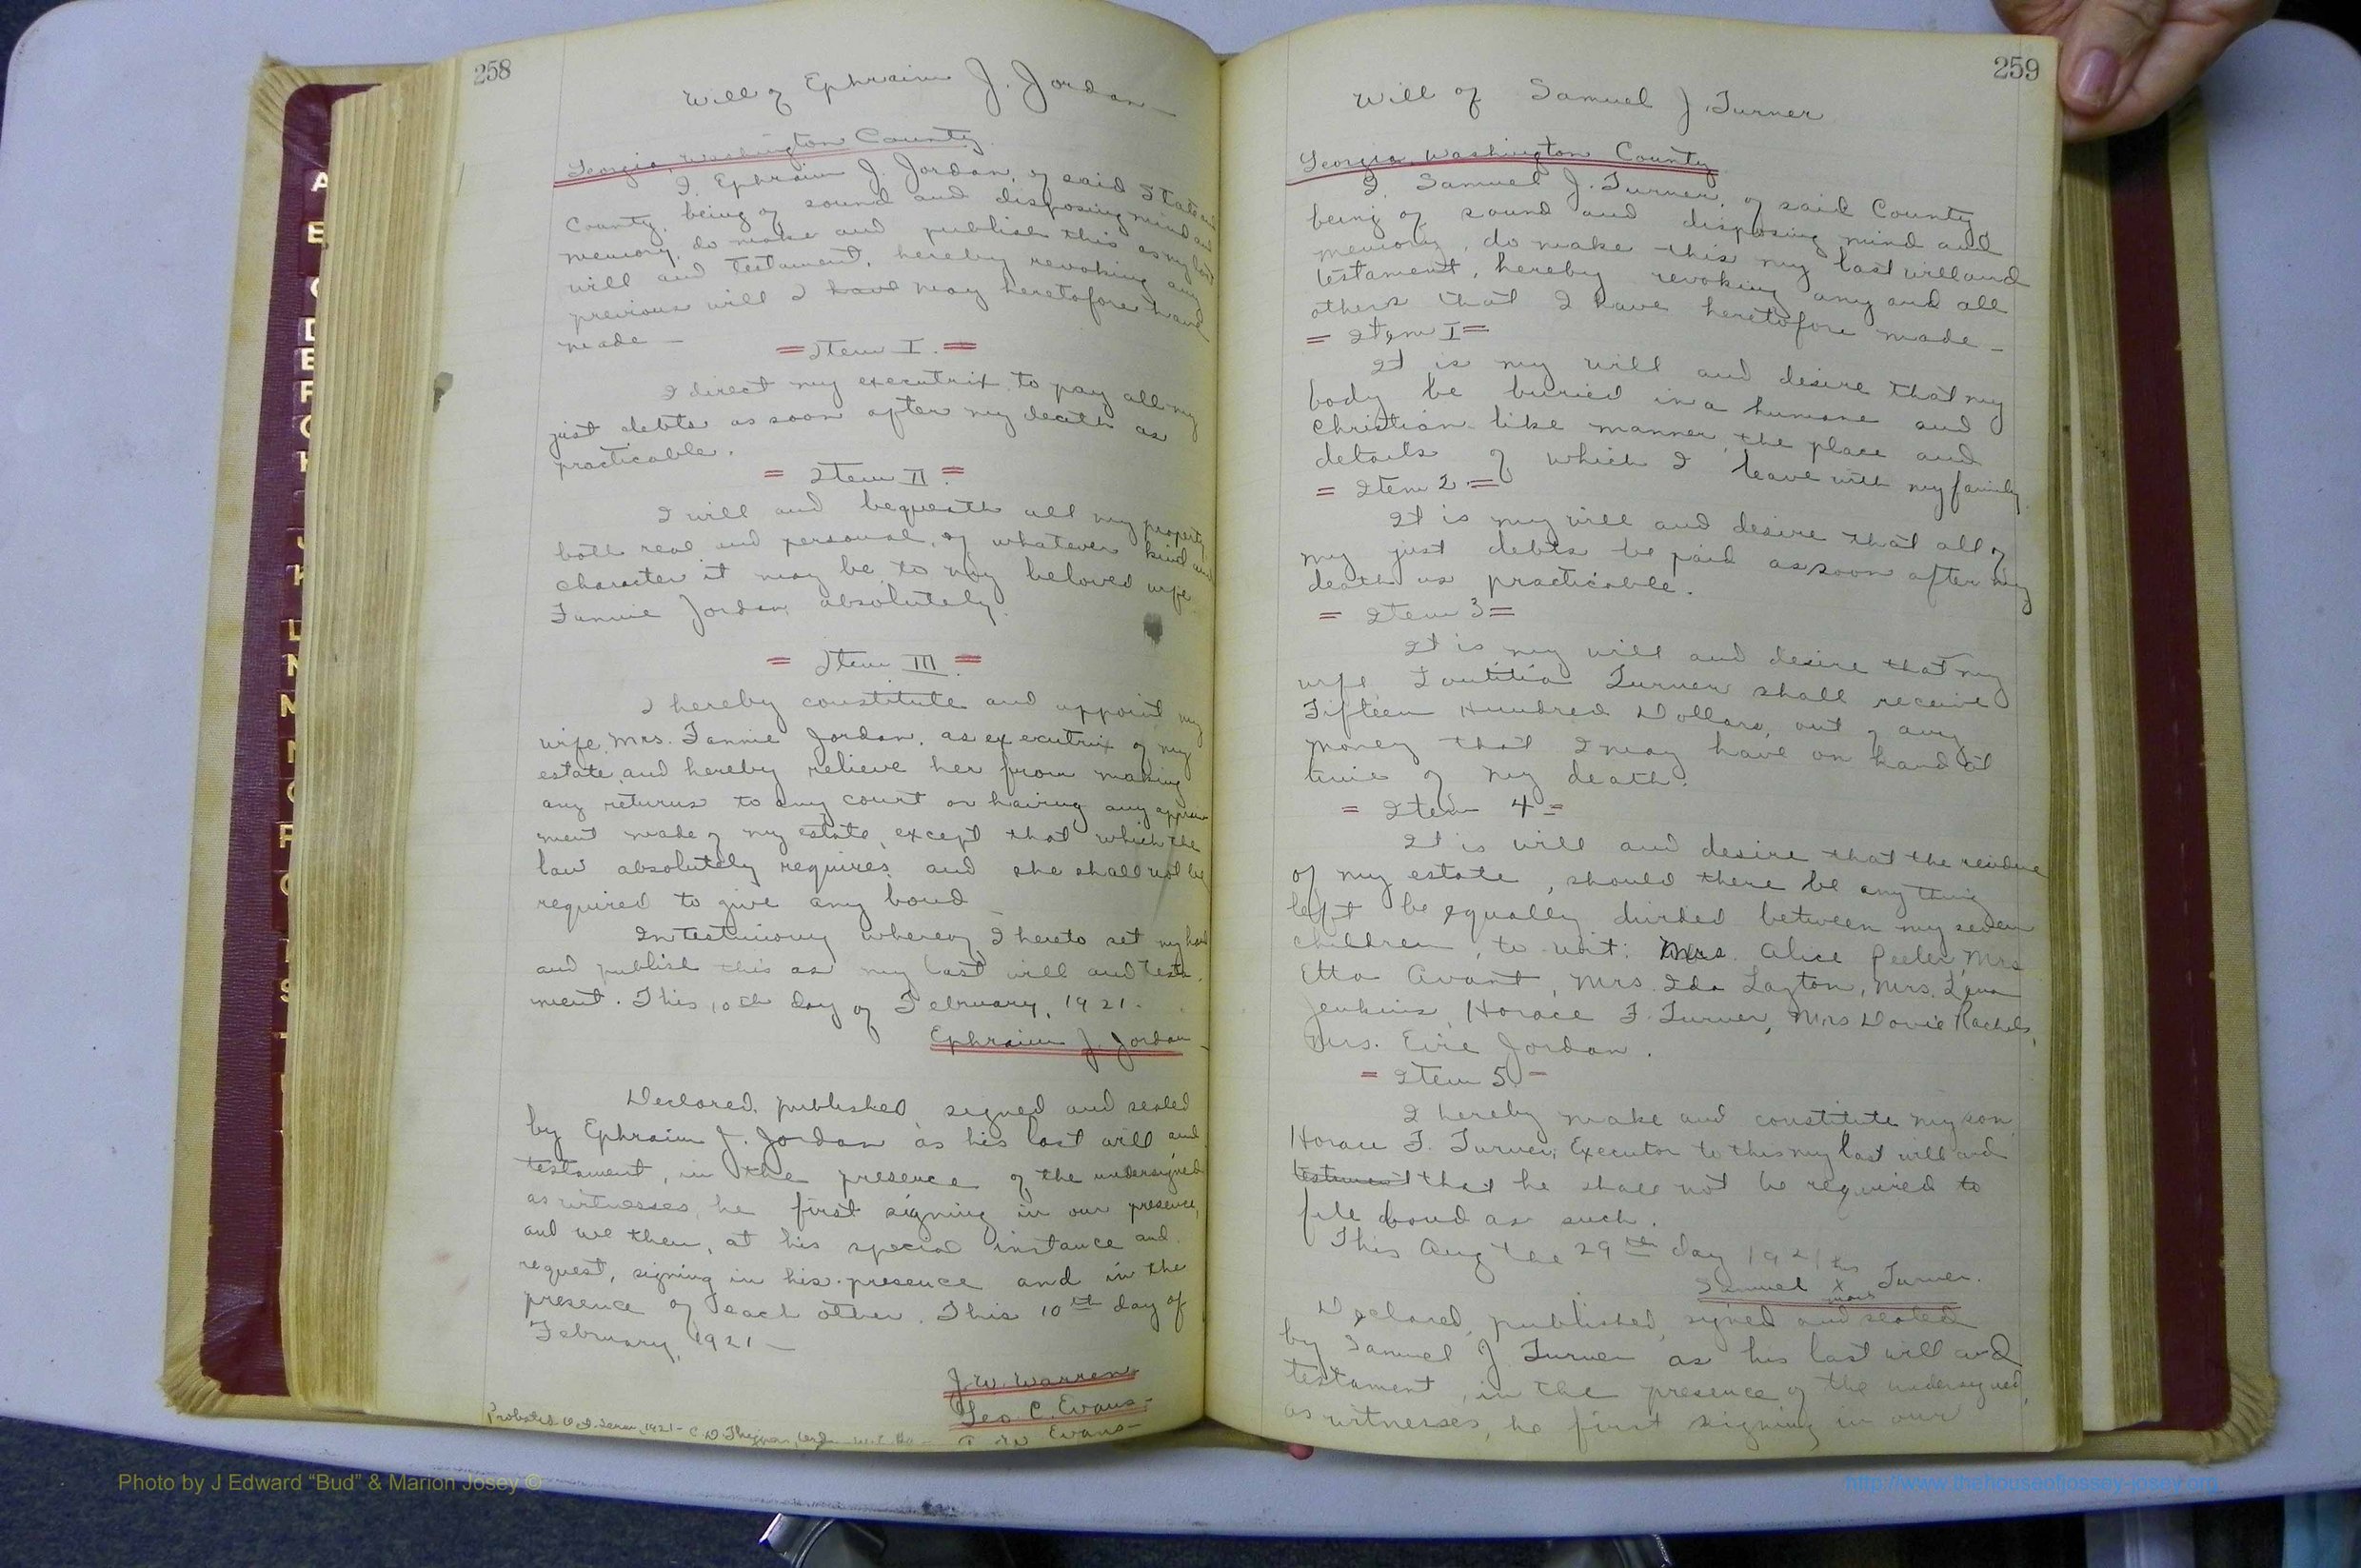 258
Will of Ephraim J. Jordan
Georgia, Washington County
I, Ephraim J. Jordan, of said State and
County, being of sound and disposing mind and
memory, do make and publish this as my last
will and testament, hereby revoking any
previous will I have may heretofore have
made —
= Item I. =
I direct my executrix to pay all my
just debts as soon after my death as
practicable.
= Item II. =
I will and bequeath all my property
both real and personal, of whatever kind and
character it may be, to my beloved wife
Fannie Jordan, absolutely.
= Item III. =
I hereby constitute and appoint my
wife, Mrs. Fannie Jordan, as executrix of my
estate, and hereby relieve her from making
any returns to any court or having any appraise
ment made of my estate, except that which the
law absolutely requires, and she shall not be
required to give any bond
In testimony whereof I hereto set my hand
and publish this as my last will and testa
ment. This 10th day of February, 1921.
Ephraim J. Jordan
Declared, published, signed and sealed
by Ephraim J. Jordan as his last will and
testament, in the presence of the undersigned
as witnesses, he first signing in our presence,
and we then, at his special instance and
request, signing in his presence and in the
presence of each other. This 10th day of
February, 1921 —
J. W. Warren
Geo. C. Evans
Evans
Probated Oct. Term, 1921 - C. D.
259
Will of Samuel J. Turner
Georgia, Washington County
I, Samuel J. Turner, of said County,
being of sound and disposing mind and
memory, do make this my last will and
testament, hereby revoking any and all
others that I have heretofore made —
= Item I =
It is my will and desire that my
body be buried in a humane and
Christian like manner, the place and
details of which I leave with my family
= Item 2 =
It is my will and desire that all of
my just debts be paid as soon after my
death as practicable.
= Item 3 =
It is my will and desire that my
wife Turner shall receive
Fifteen Hundred Dollars, out of any
money that I may have on hand at
time of my death.
= Item 4 =
It is will and desire that the residue
of my estate, should there be anything
left be equally divided between my seven
children, to-wit: Mrs. Alice Peeler, Mrs
Etta Avant, Mrs. Ida Layton, Mrs.
Jenkins, Horace F. Turner, Mrs Dovie Rachels,
Mrs. Evie Jordan.
= Item 5 =
I hereby make and constitute my son
Horace F. Turner, Executor to this my last will and
testament that he shall not be required to
file bond as such.
This Aug the 29th day 1921
his
Samuel X Turner.
mark
Declared, published, signed and sealed
by Samuel J. Turner as his last will and
testament, in the presence of the undersigned,
as witnesses, he first signing in our
A
E
L
N
Photo by J Edward “Bud” & Marion Josey ©
http://www.thehouseofjossey-josey.org